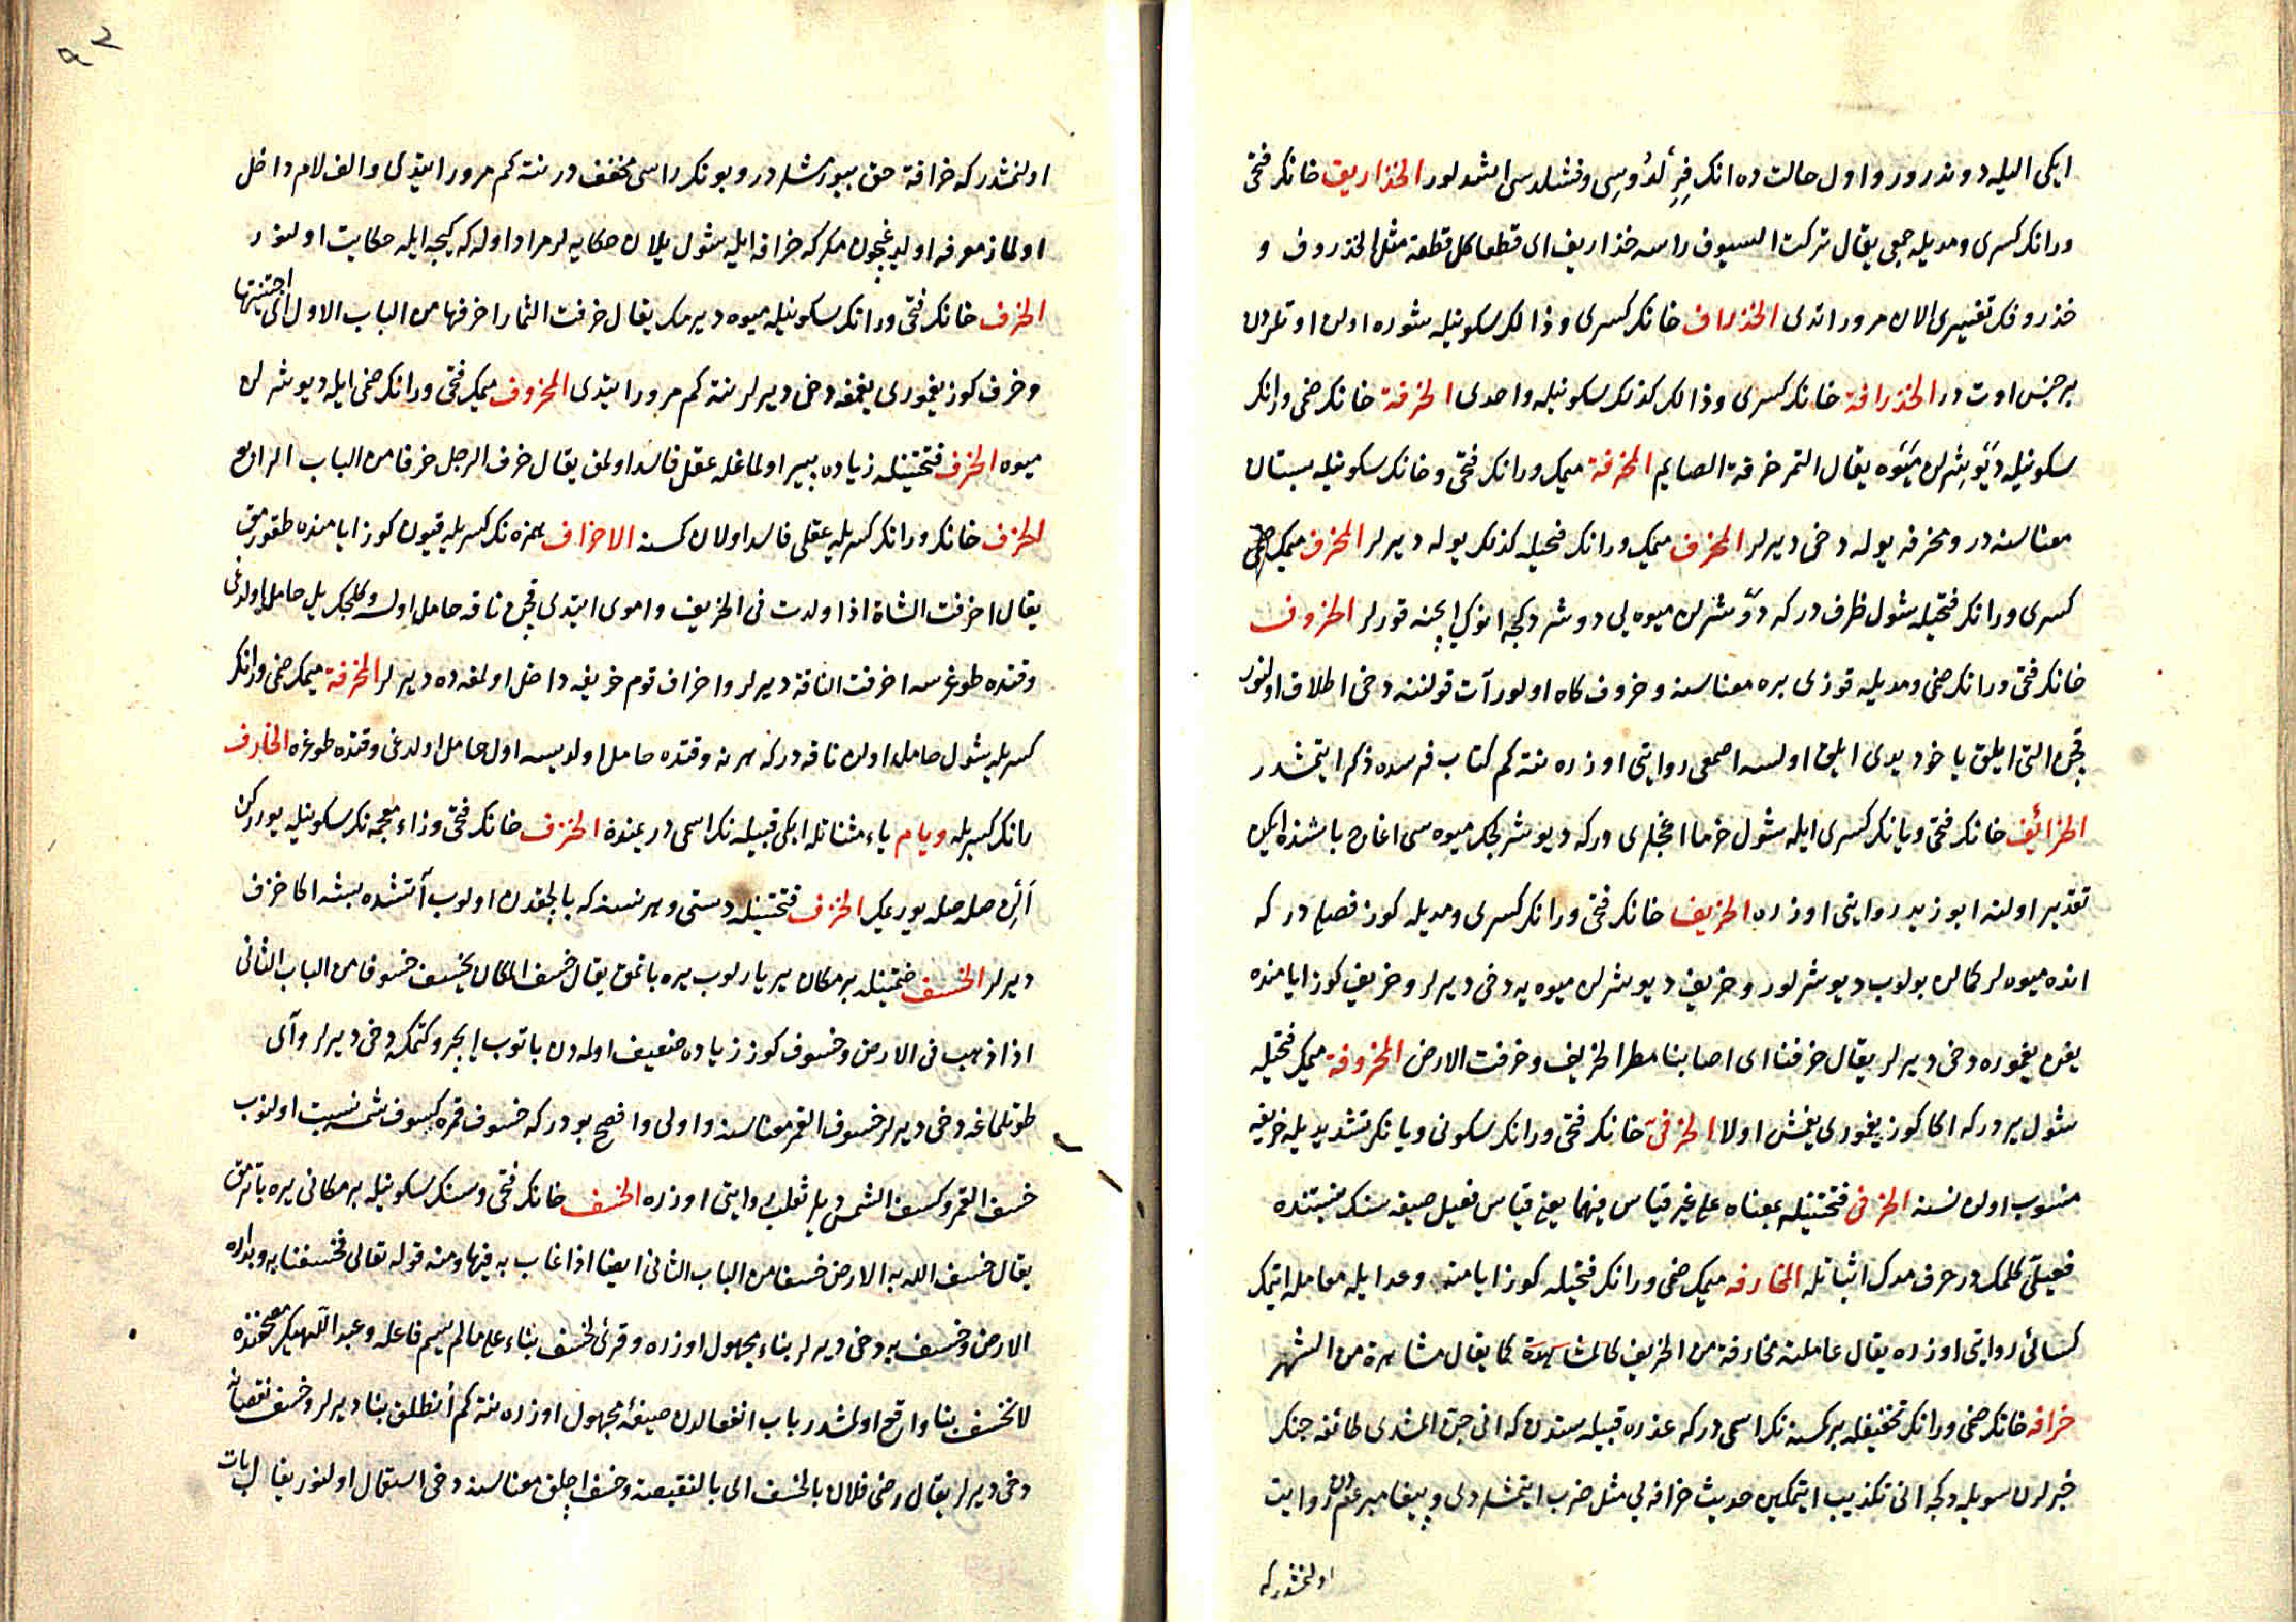 ایکی الیله دوندرور و اول حالت ده انك فر لدوسی و فشلدسی اشدلور الخذاریف خانك فتحی
ورانك كسری و مدیله جمعی یقال تركت السیوف راسه خذاریف ای قطعا كل قطعة مثل الخذروف و
خذروفك تفسیری الان مرور اتدی الخذراف خانك كسری و ذالك سكونیله شوره اولن اوتلردن
بر جنس اوت در الخذرافة خانك كسری و ذالك كذلك سكونیله واحدی الخرفة خانك ضمی ورانك
سكونیله دیوشرلن میوه یقال التمر خرفة الصایم المخرفة میمك ورانك فتحی و خانك سكونیله بستان
معناسنه در و مخرفه یوله دخی دیرلر المخرف میمك ورانك فتحیله كذلك یوله دیرلر المخرف میمك
كسری ورانك فتحیله شول ظرف در كه دوشرلن میوه یی دوشردكچه انوك ایچنه قورلر الخروف
خانك فتحی ورانك ضمی و مدیله قوزی بره معناسنه و خروف كاه اولور آت قولننه دخی اطلاق اولنور
قچن التی ایلق یا خود یدی ایلق اولسه اصمعی روایتی اوزره نته كم كتاب فرسده ذكر ایتمشدر
الخرائف خانك فتحی و یانك كسری ایله شول خرما اغجلری در كه دیوشریجك میوه سی اغاج باشنده ایكن
تقدیر اولنه ابو زید روایتی اوزره الخریف خانك فتحی ورانك كسری و مدیله كوز فصلی در كه
انده میوه لر كمالن بولوب دیوشرلور و خریف دیوشرلن میوه یه دخی دیرلر و خریف كوز ایامنده
یغن یغموره دخی دیرلر یقال خرفنا ای اصابنا مطر الخریف و خرفت الارض المخروفة میمك فتحیله
شول یردر كه اكا كوز یغموری یغمش اولا الخرفیّ خانك فتحی ورانك سكونی و یانك تشدیدیله خریفه
منسوب اولن نسنه الخرفی فتحتینله بمعناه علی غیر قیاس فیهما یعنی قیاس فعیل صیغه سنك نسبتنده
فعیلیّ كلمكدر حرف مدك اثباتله المخارفه میمك ضمی ورانك فتحیله كوز ایامنه وعد ایله معامله ایتمك
كسائی روایتی اوزره یقال عاملته مخارفة من الخریف كالمشاهرة كما یقال مشاهرة من الشهر
خرافه خانك ضمی ورانك تخفیفله بر كسنه نك اسمی در كه عذره قبیله سندن كه انی جن المشدی طائفه جنك
خبرلرن سویلدكجه انی تكذیب ایتمكین حدیث خرافه یی مثل ضرب ایتمشلردی و پیغامبر عم دن روایت
اولنمشدر كه
اولنمشدر كه خرافة حق بیورمشلر در و بونك راسی مخفف در نته كم مرور ایتدی و الف لام داخل
اولماز معرفه اولدیغیچون مكر كه خرافه ایله شول یلان حكایه لر مراد اوله كه كیجه ایله حكایت اولنور
الخرف خانك فتحی ورانك سكونیله میوه دیرمك یقال خرفت الثمار اخرفها من الباب الاول ای اجتنیتها
و خرف كوز یغموری یغمغه دخی دیرلر نته كم مرور ایتدی المخروف میمك فتحی ورانك ضمی ایله دیوشرلن
میوه الخرف فتحتینله زیاده پیر اولماغله عقل فاسد اولمق یقال خرف الرجل خرفا من الباب الرابع
الخرف خانك ورانك كسریله عقلی فاسد اولان كسنه الاخراف همزه نك كسریله قیون كوز ایامنده طقورمق
یقال اخرفت الشاة اذا ولدت فی الخریف و اموی ایتدی قچن ناقه حامل اولسه و كلجك ییل حامل اولدغی
وقتده طوغرسه اخرفت الناقة دیرلر و اخراف قوم خریفه داخل اولمقده دیرلر المخرفة میمك ضمی ورانك
كسریله شول حامل اولن ناقه در كه هر نه وقتده حامل اولویسه اول حامل اولدغی وقتده طوغره الخارف
رانك كسریله و یام یاء مثناتله ایكی قبیله نك اسمی در یمنده الخزف خانك فتحی و زاء معجمه نك سكونیله یورركن
الن صله صله یوریمك الخزف فتحتینله دستی و هر نسنه كه بالچقدن اولوب آتشده پشه اكا خزف
دیرلر الخسوف ضمتینله بر مكان یر یارلوب یره باتمق یقال خسف المكان یخسف خسوفا من الباب الثانی
اذا ذهب فی الارض و خسوف كوز زیاده ضعیف اولمه دن باتوب ایچرو كتمكه دخی دیرلر و آی
طوتلماغه دخی دیرلر خسوف القمر معناسنه و اولی و افصح بودر كه خسوف قمره كسوف شمسه نسبت اولنوب
خسف القمر و كسف الشمس دیله ثعلب روایتی اوزره الخسف خانك فتحی و سینك سكونیله بر مكانی یره باترمق
یقال خسف الله به الارض خسفا من الباب الثانی ایضا اذا غاب به فیها و منه قوله تعالی فخسفنا به و بداره
الارض و خسف به دخی دیرلر بناء مجهول اوزره و قرئ لخسف بناء علی ما لم یسم فاعله و عبد اللهك مصحفنده
لانخسف بنا واقع اولمشدر باب انفعالدن صیغهٔ مجهول اوزره نته كم انطلق بنا دیرلر و خسف نقصانه
دخی دیرلر یقال رضی فلان بالخسف ای بالنقیصه و خسف اچلق معناسنه دخی استعمال اولنور یقال بات